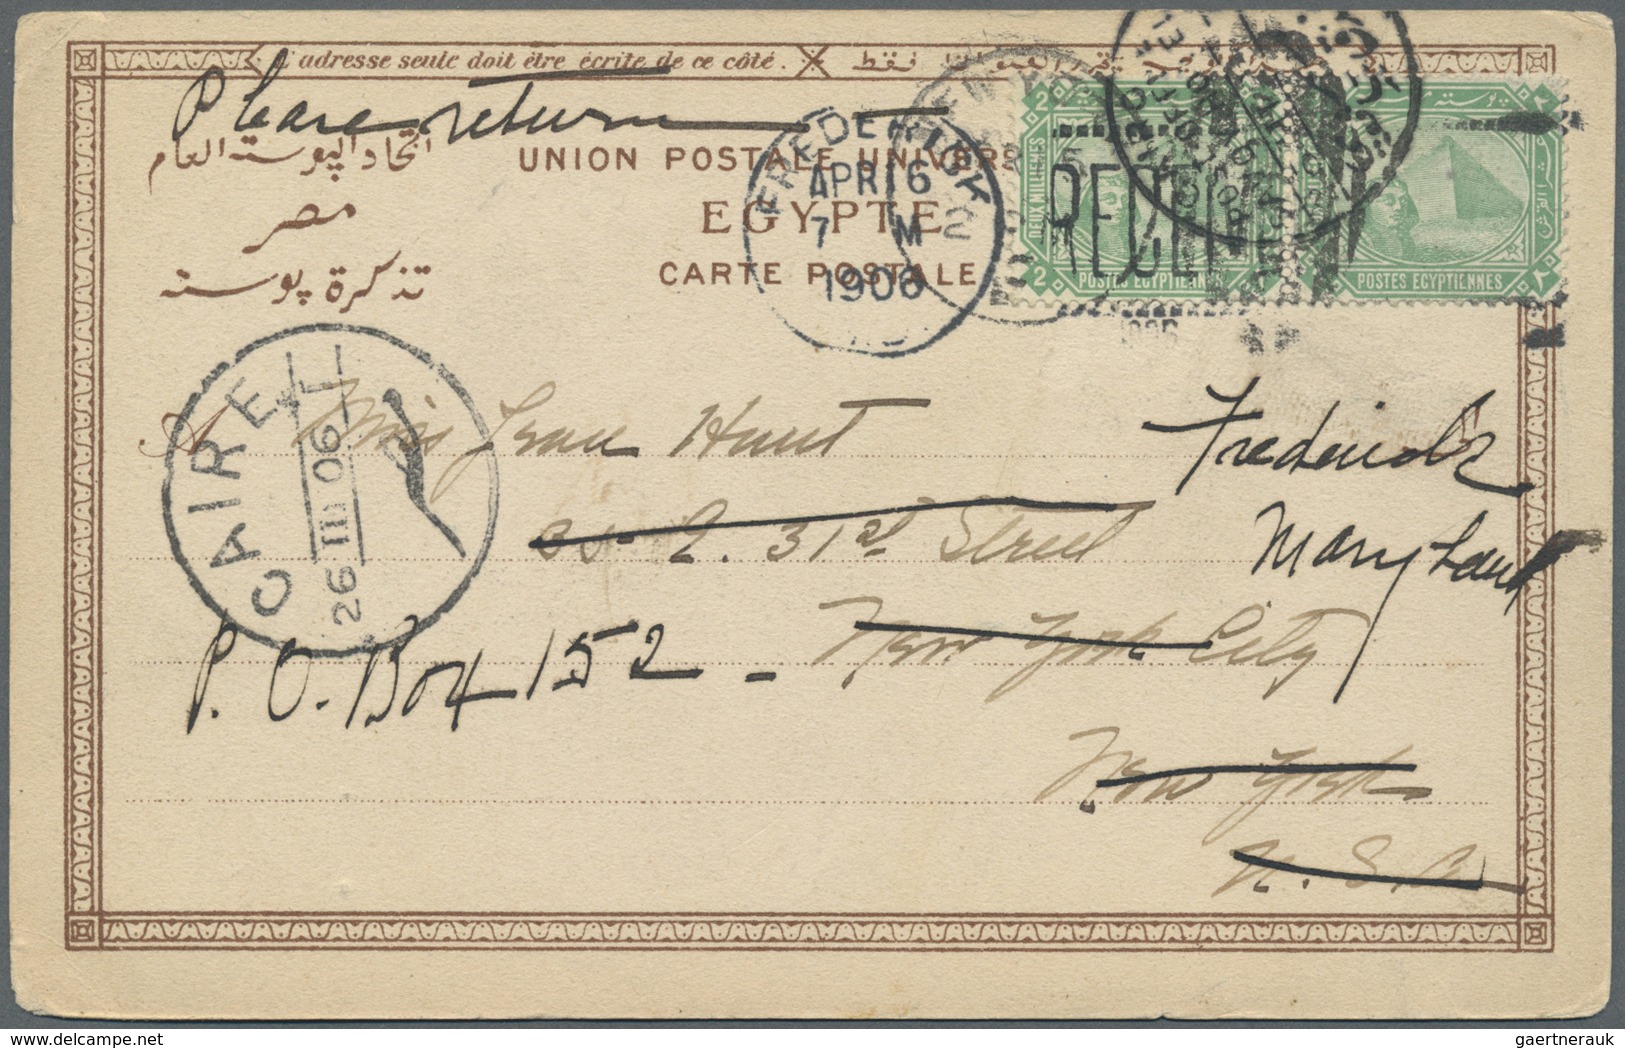 L'adresse seule doit être écrite de ce côté.
Please return
اتحاد البوستة العام
UNION POSTALE UNIVERS
مصر
EGYPTE
تذكرة بوستة
CARTE POSTALE
FREDERICK
APR 16
7 M
1906
2 2
DEUX MILLIEMES
POSTES EGYPTIENNES
POSTES EGYPTIENNES
RECEIV
CAIRE
26 III 06
A Miss Hunt
E. 31st Street
New York City
New York
U.S.A.
Frederick
Maryland
P. O. Box 152 -
gaertnerauk